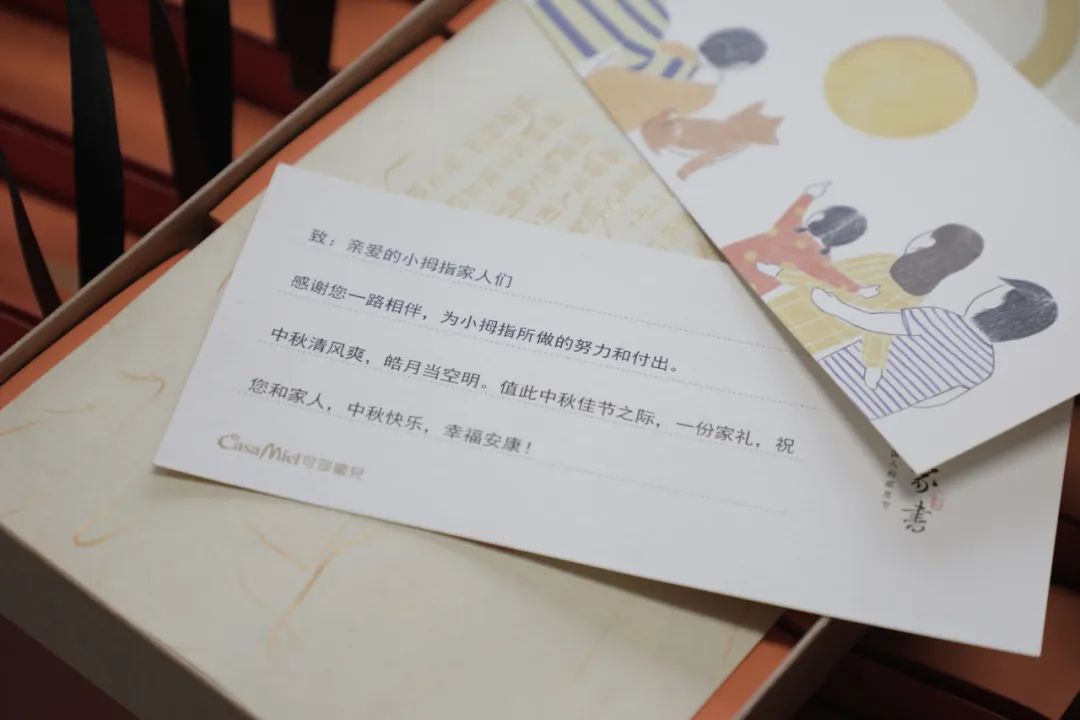 致：亲爱的小拇指家人们
感谢您一路相伴，为小拇指所做的努力和付出。
中秋清风爽，皓月当空明。值此中秋佳节之际，一份家礼，祝
您和家人，中秋快乐，幸福安康！
Casa Miel 可莎蜜兒
家書